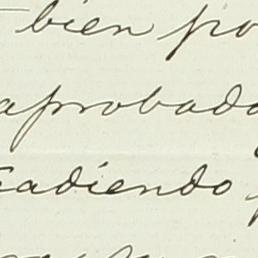 bien po
aprobado
adiendo